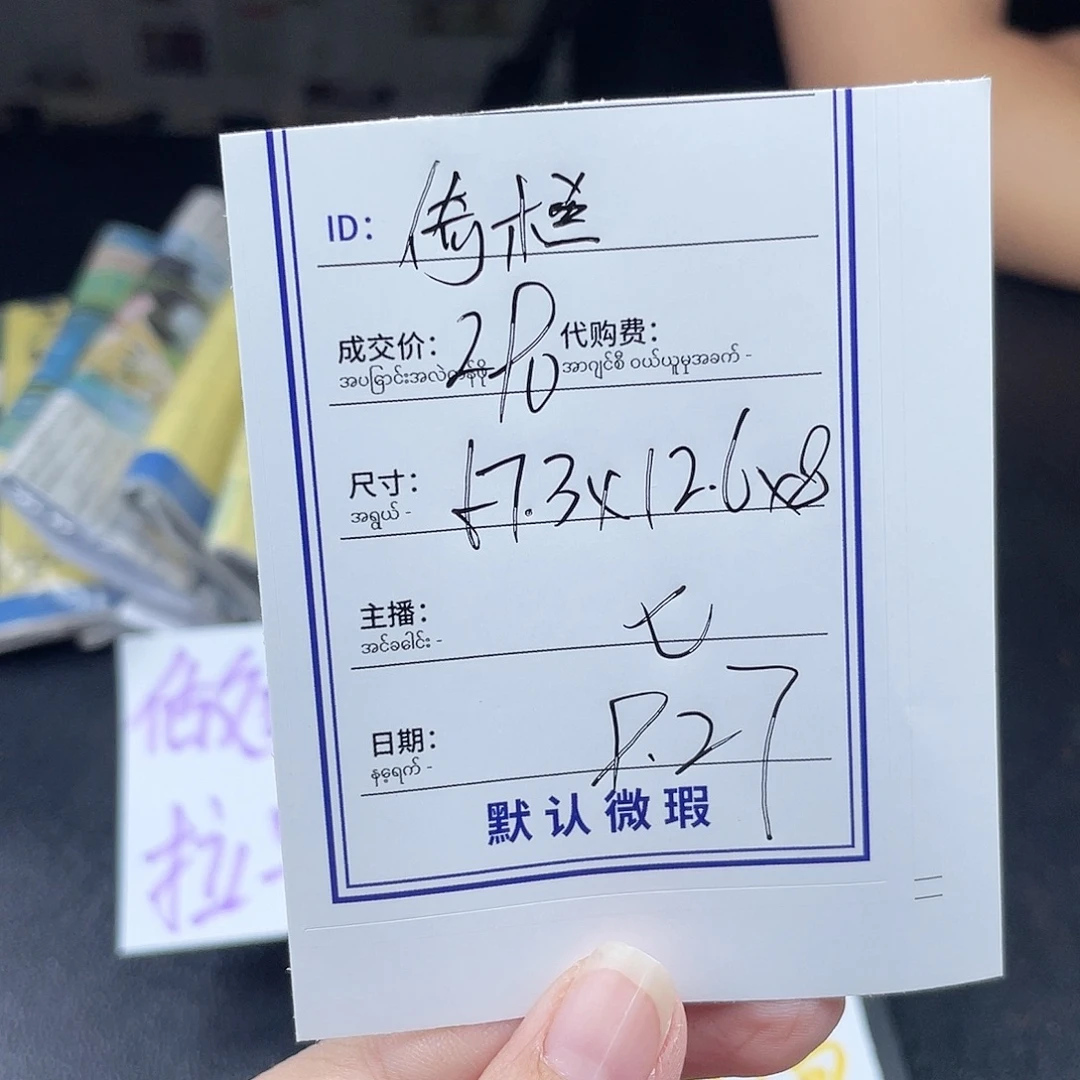 ID: 倚栏
成交价: 290 代购费:
အပြောင်းအလဲတန်ဖိုး အာဂျင်စီ ဝယ်ယူမှုအခက် -
尺寸: 57.3x12.6x8
အရွယ် -
主播: 七
အင်ခေါင်း -
日期: 8.27
နေ့ရက် -
默认微瑕
拉